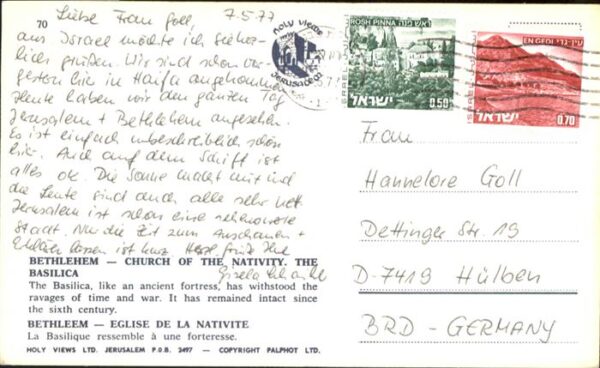 70
7.5.77
Liebe Frau Goll,
aus Israel möchte ich Sie herz-
lich grüßen. Wir sind schon vor-
gestern hier in Haifa angekommen
Heute haben wir den ganzen Tag
Jerusalem + Bethlehem angesehen.
Es ist einfach unbeschreiblich schön
hier. Auch auf dem Schiff ist
alles ok. Die Sonne macht mit und
die Leute sind auch alle sehr nett.
Jerusalem ist schon eine sehenswerte
Stadt. Nur die Zeit zum Anschauen +
ist kurz. Herzl. Grüße Ihre
Gisela
BETHLEHEM — CHURCH OF THE NATIVITY. THE
BASILICA
The Basilica, like an ancient fortress, has withstood the
ravages of time and war. It has remained intact since
the sixth century.
BETHLEEM — EGLISE DE LA NATIVITE
La Basilique ressemble à une forteresse.
HOLY VIEWS LTD. JERUSALEM P.O.B. 2497 — COPYRIGHT PALPHOT LTD.
HOLY VIEWS
JERUSALEM
ROSH PINNA ראש פנה
ISRAEL
ישראל
0.50
EN GEDI עין-גדי
ISRAEL
ישראל
0.70
Frau
Hannelore Goll
Dettinger Str. 19
D-7419 Hülben
BRD - GERMANY